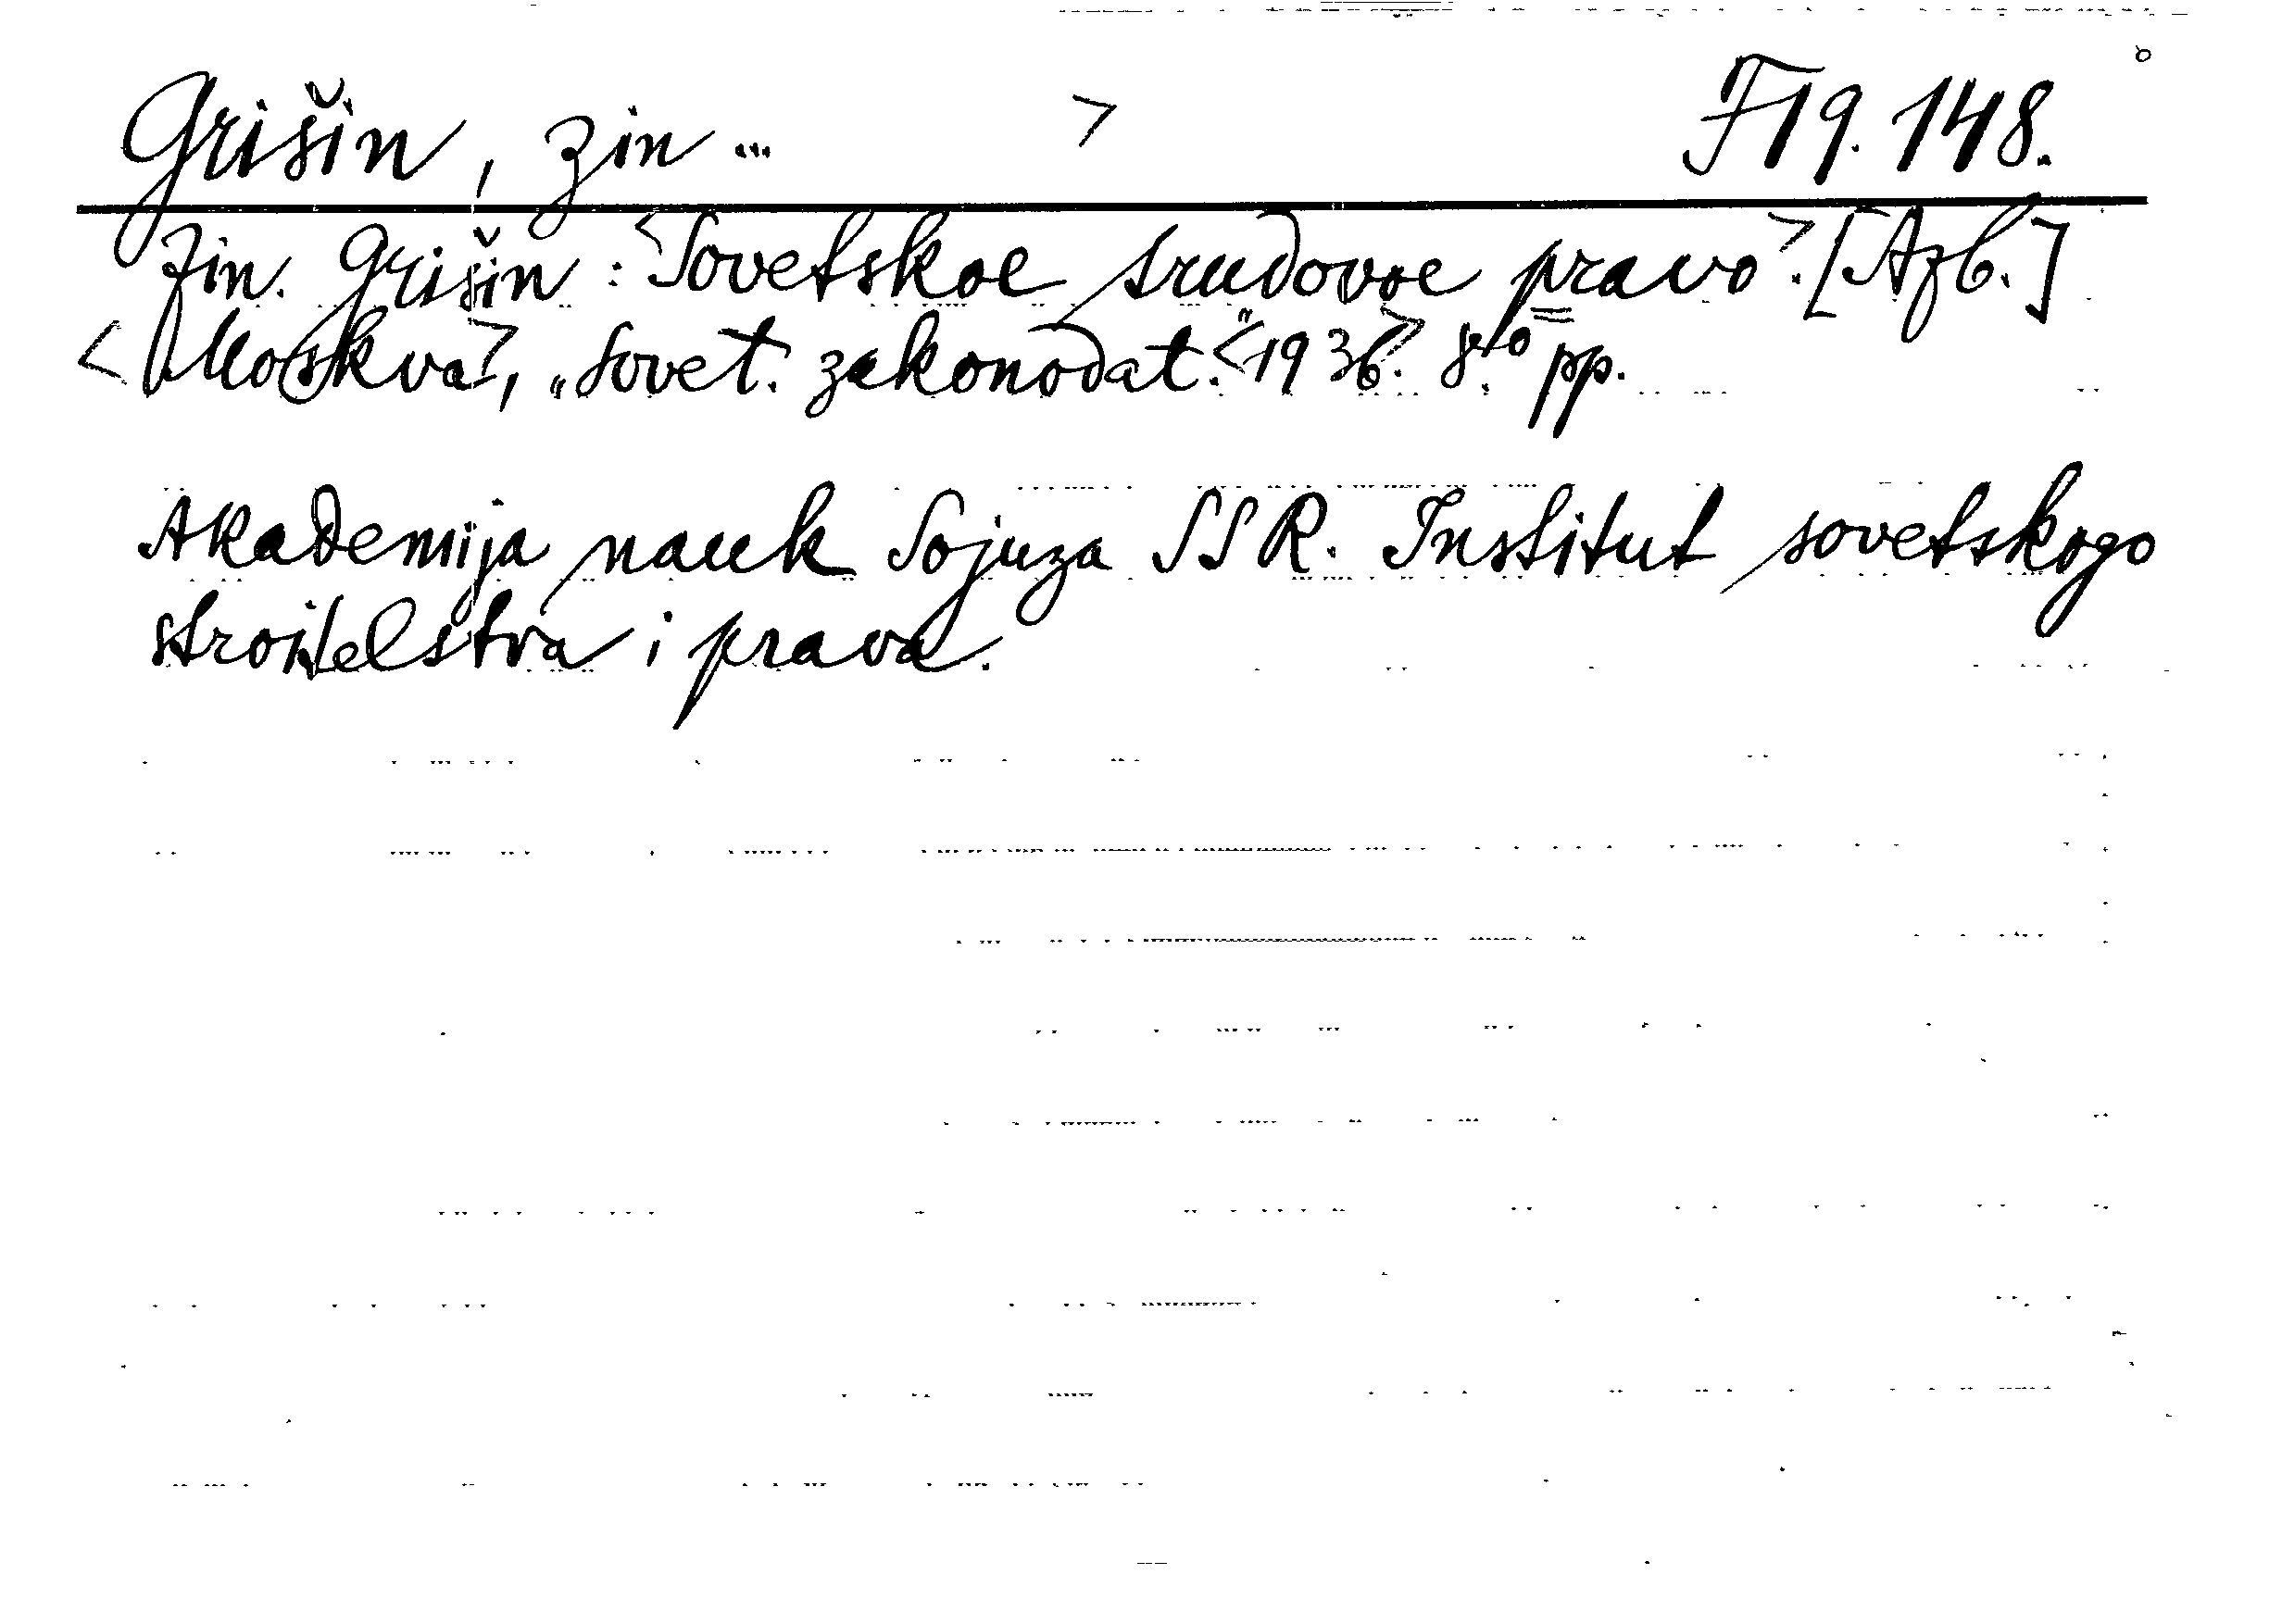 Grišin, Zin... > F 19. 148.
Zin. Grišin: <Sovetskoe trudovoe pravo>. [Azb.]
<Moskva>, „Sovet. zakonodat.“ <1936>. 8.to pp.
Akademija nauk Sojuza SSR. Institut sovetskogo
stroitelstva i prava.